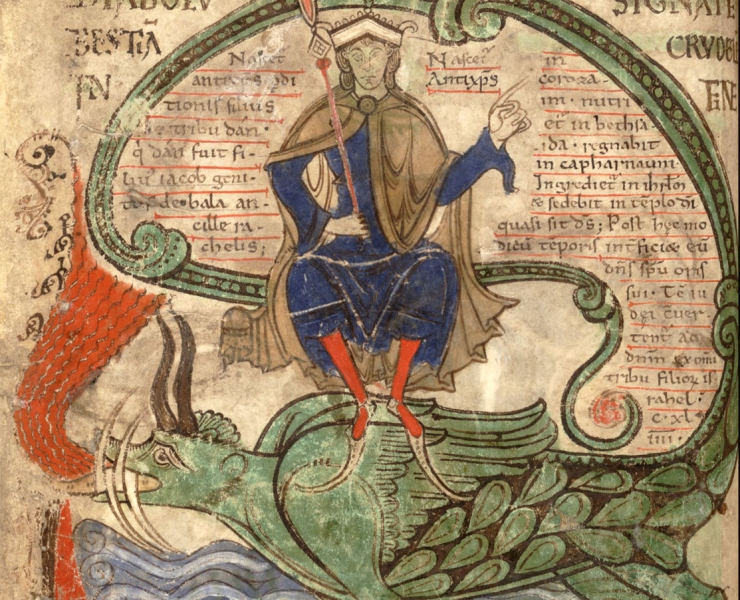 DIABOLV
SIGNATE
BESTIÃ
CRVDELI
IN
TINE
Nascet̃
antixp̃s p̱di
tionis filius
de tribu dan·
q̇ dan fuit fi-
lius iacob geni-
tus de bala an-
cille ra-
chelis;
Nascet̃
Antixp̃s
in
coroza-
im · nutri
et̃ in bethsa-
ida · regnabit
in capharnaum·
Ingrediet̃ in ihrl̃m
& sedebit in tẽplo dī
quasi sit d̃s; Post hec mo
dicũ tẽporis interficiæ eũ
dñs sp̃u oris
sui · Tc̃ iu
dei cũer-
tent̃ ad
dñm ex om̃i
tribu filior is
rahel·
c·xl·
iiii·